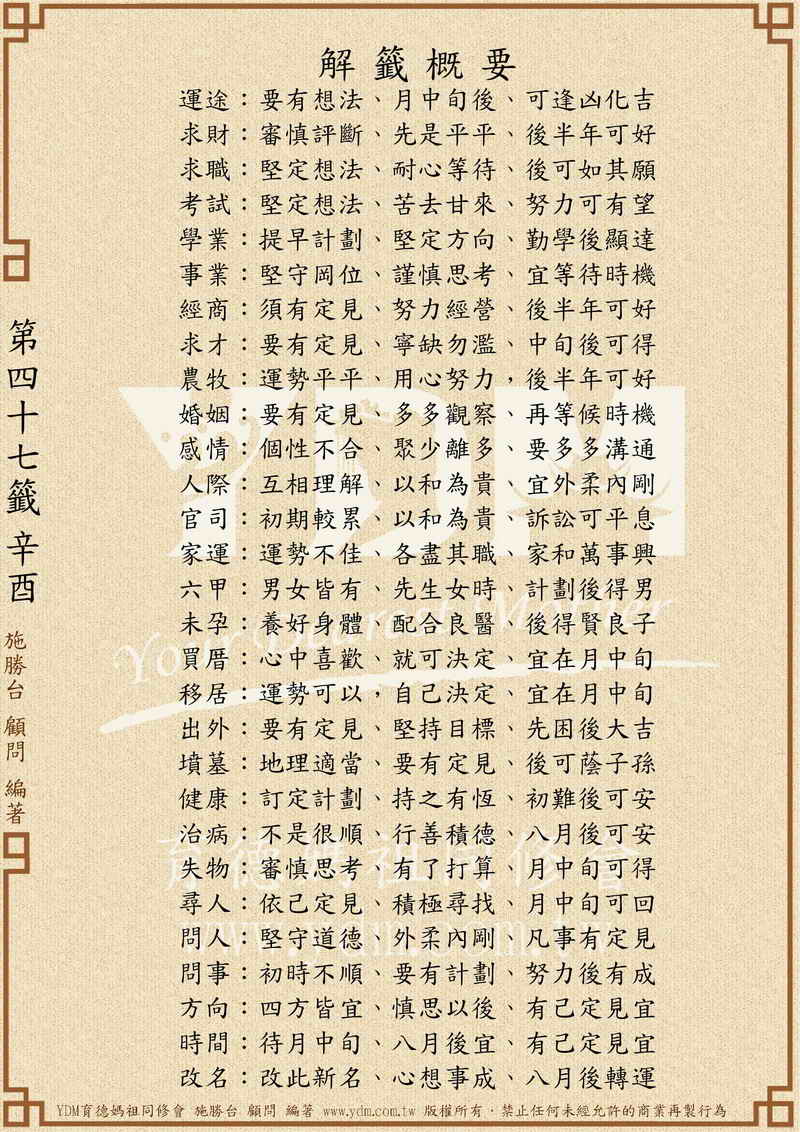 解籤概要
運途：要有想法、月中旬後、可逢凶化吉
求財：審慎評斷、先是平平、後半年可好
求職：堅定想法、耐心等待、後可如其願
考試：堅定想法、苦去甘來、努力可有望
學業：提早計劃、堅定方向、勤學後顯達
事業：堅守岡位、謹慎思考、宜等待時機
經商：須有定見、努力經營、後半年可好
求才：要有定見、寧缺勿濫、中旬後可得
農牧：運勢平平、用心努力，後半年可好
婚姻：要有定見、多多觀察、再等候時機
感情：個性不合、聚少離多、要多多溝通
人際：互相理解、以和為貴、宜外柔內剛
官司：初期較累、以和為貴、訴訟可平息
家運：運勢不佳、各盡其職、家和萬事興
六甲：男女皆有、先生女時、計劃後得男
未孕：養好身體、配合良醫、後得賢良子
買厝：心中喜歡、就可決定、宜在月中旬
移居：運勢可以，自己決定、宜在月中旬
出外：要有定見、堅持目標、先困後大吉
墳墓：地理適當、要有定見、後可蔭子孫
健康：訂定計劃、持之有恆、初難後可安
治病：不是很順、行善積德、八月後可安
失物：審慎思考、有了打算、月中旬可得
尋人：依己定見、積極尋找、月中旬可回
問人：堅守道德、外柔內剛、凡事有定見
問事：初時不順、要有計劃、努力後有成
方向：四方皆宜、慎思以後、有己定見宜
時間：待月中旬、八月後宜、有己定見宜
改名：改此新名、心想事成、八月後轉運
第四十七籤 辛酉
施勝台 顧問 編著
YDM
Your Dearest Mother
育德媽祖同修會
www.ydm.com.tw
YDM育德媽祖同修會 施勝台 顧問 編著 www.ydm.com.tw 版權所有．禁止任何未經允許的商業再製行為